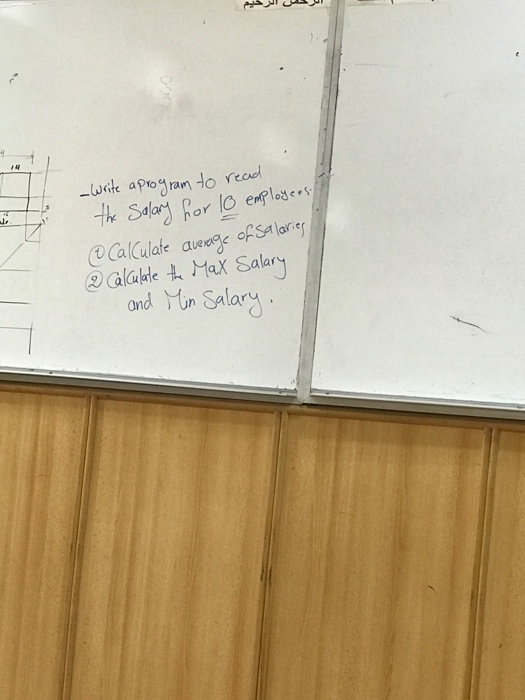 الرحمن الرحيم
14
- Write a program to read
the Salary for 10 employees.
① Calculate average of Salaries
② Calculate the Max Salary
and Min Salary.